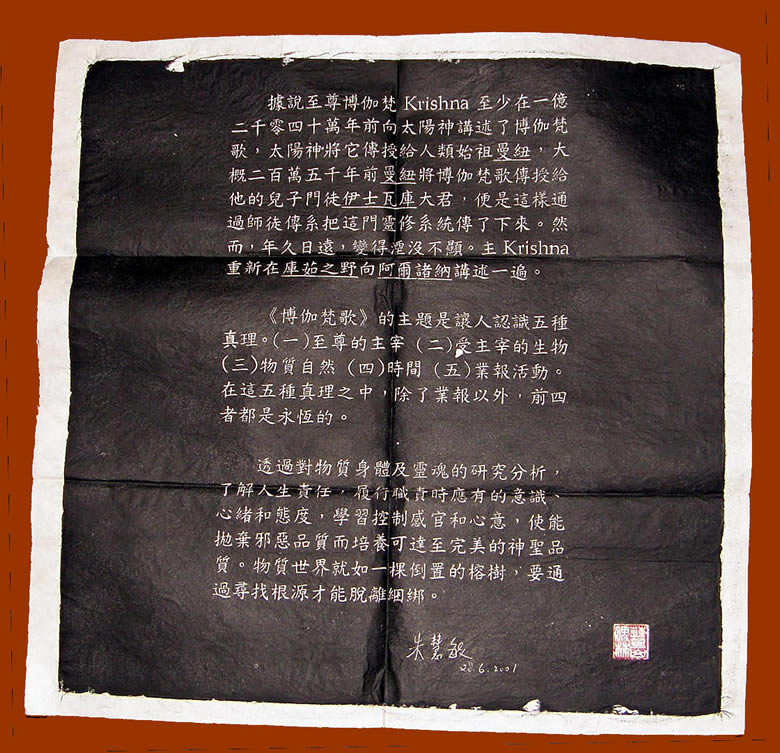 據說至尊博伽梵 Krishna 至少在一億
二千零四十萬年前向太陽神講述了博伽梵
歌，太陽神將它傳授給人類始祖曼紐，大
概二百萬五千年前曼紐將博伽梵歌傳授給
他的兒子門徒伊士瓦庫大君，便是這樣通
過師徒傳系把這門靈修系統傳了下來。然
而，年久日遠，變得湮沒不顯。主 Krishna
重新在庫茹之野向阿爾諸納講述一遍。
《博伽梵歌》的主題是讓人認識五種
真理。(一)至尊的主宰 (二)受主宰的生物
(三)物質自然 (四)時間 (五)業報活動。
在這五種真理之中，除了業報以外，前四
者都是永恆的。
透過對物質身體及靈魂的研究分析，
了解人生責任，履行職責時應有的意識、
心緒和態度，學習控制感官和心意，使能
拋棄邪惡品質而培養可達至完美的神聖品
質。物質世界就如一棵倒置的榕樹，要通
過尋找根源才能脫離綑綁。
朱慧敏
28.6.2001